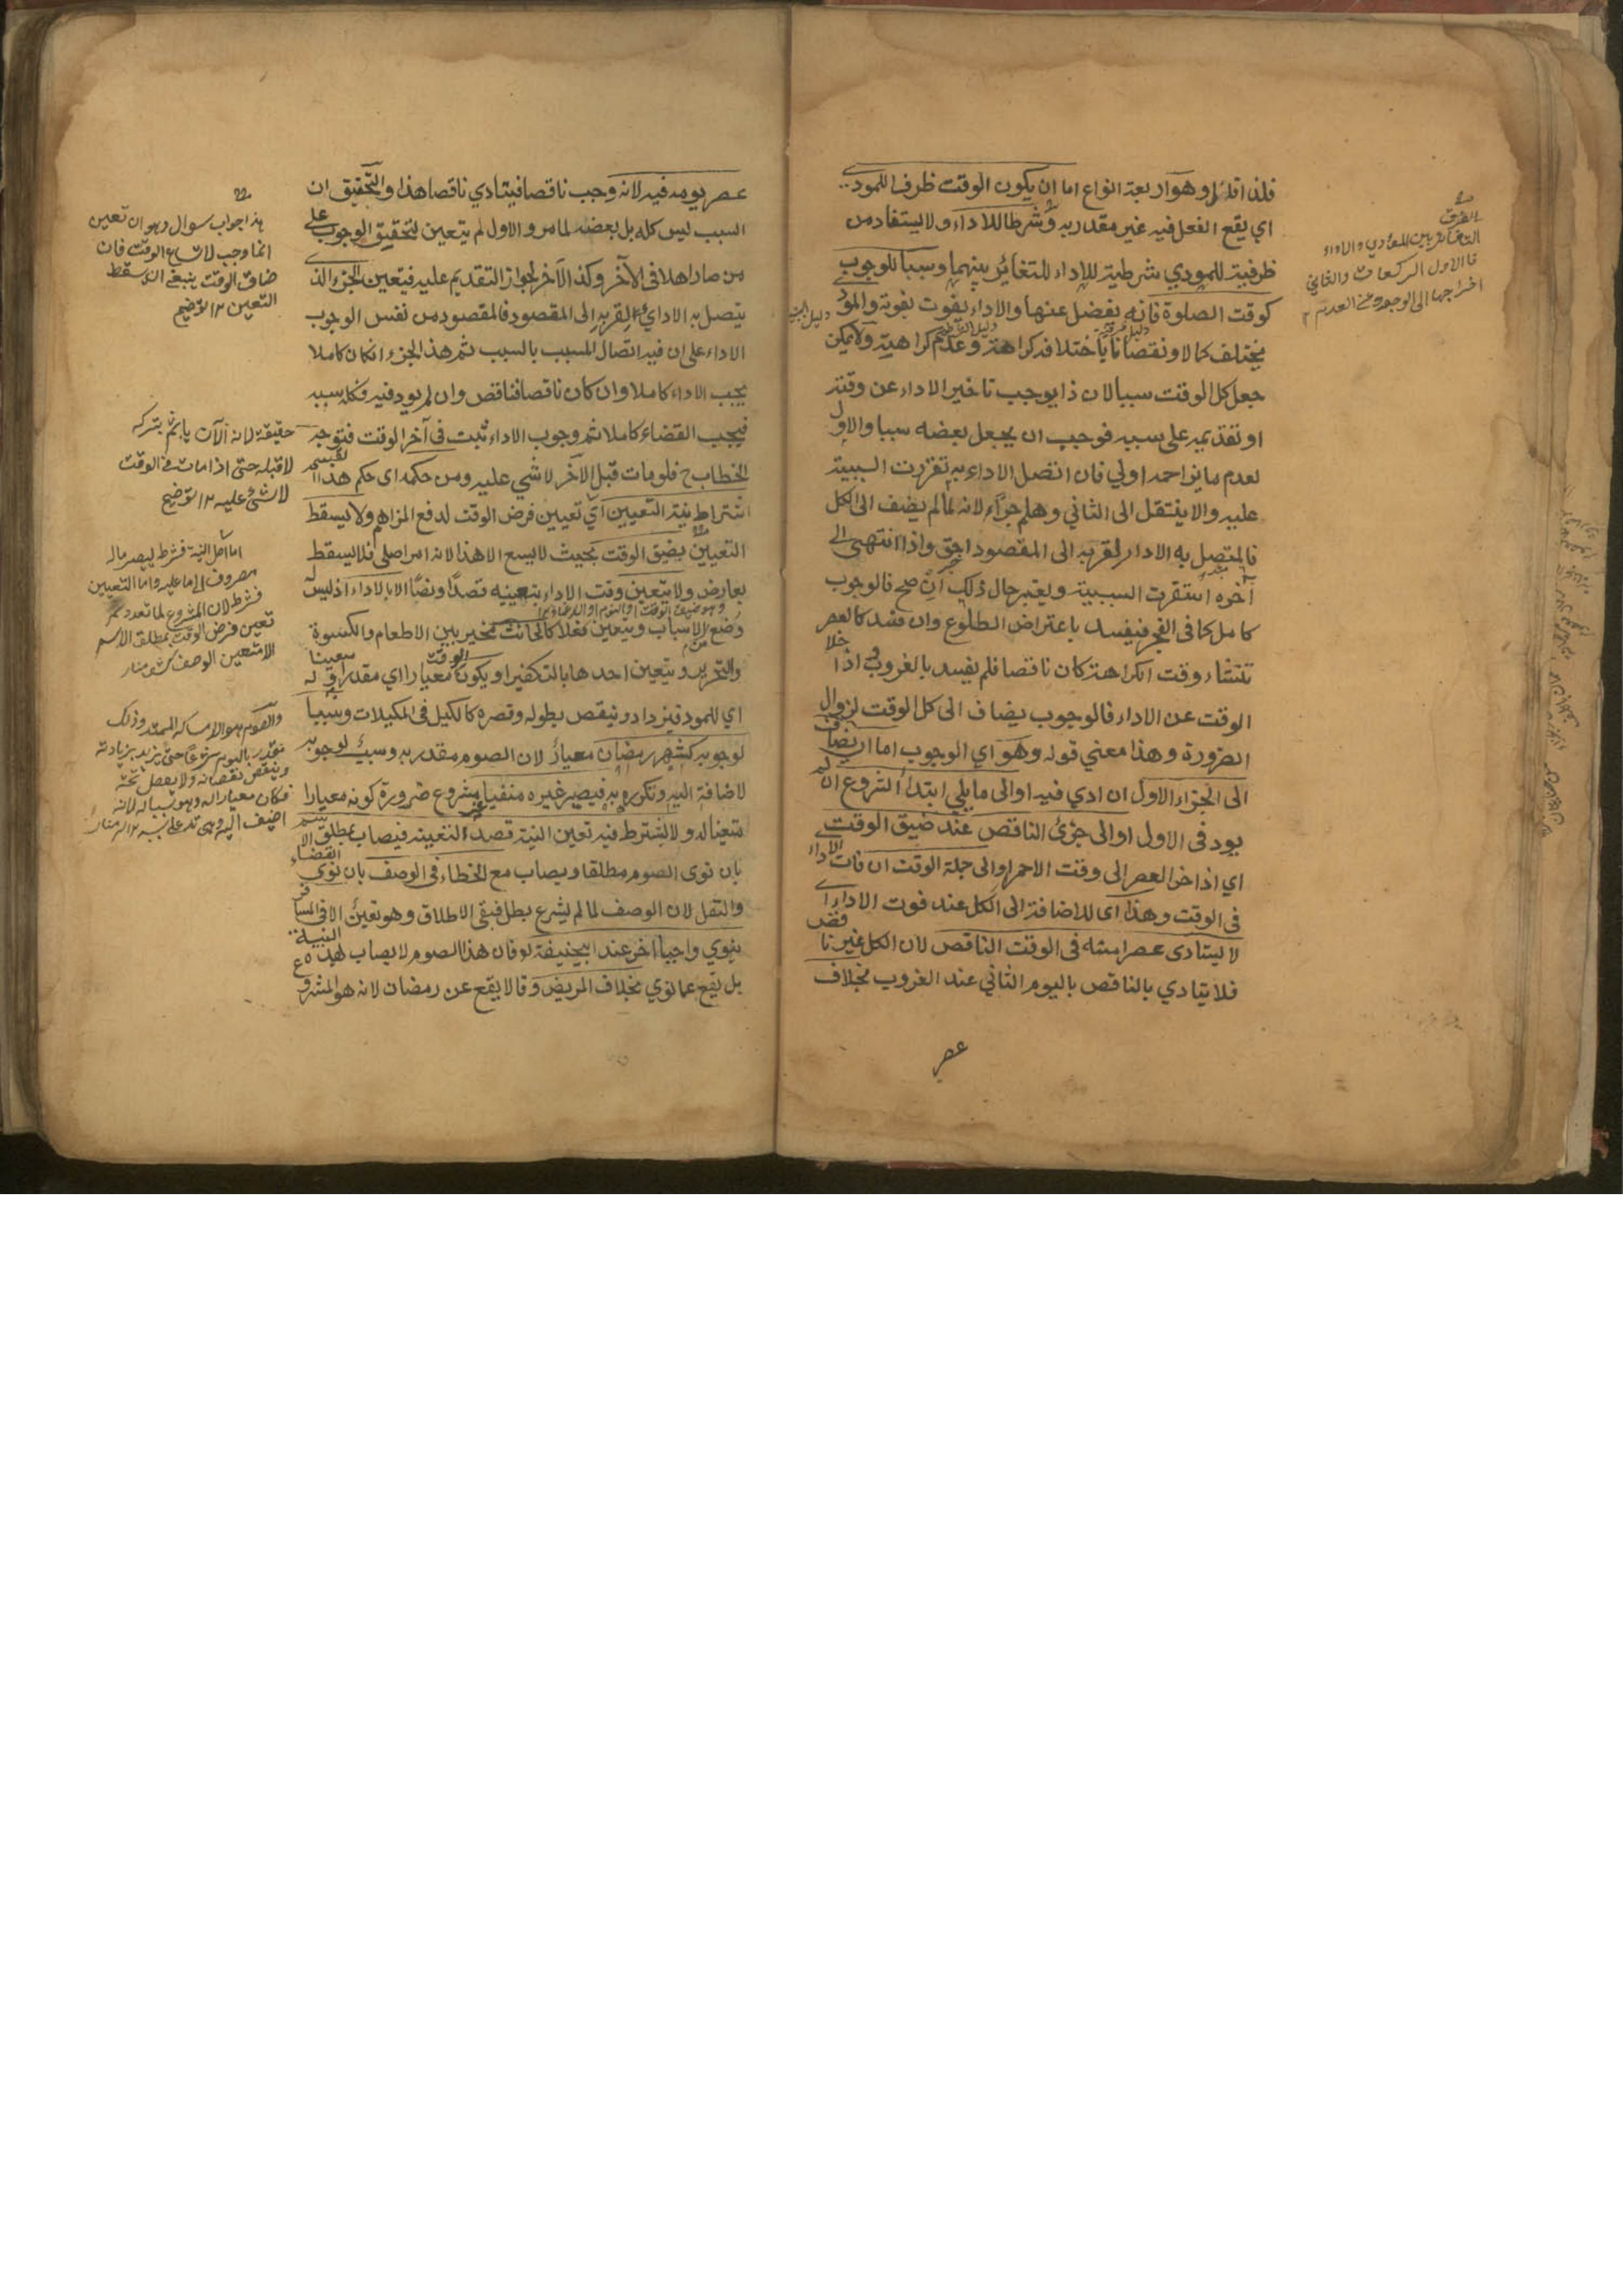 فلذا قال وهو اربعة انواع اما ان يكون الوقت ظرفا للمودى
اي يقع الفعل فيه غير مقدر به وشرطا للاداء ولا يستفاد من
ظرفية للمودي شرطية للاداء للتغائر بينهما وسببا للوجوب
كوقت الصلوة فانه يفضل عنها والاداء يفوت بفوته والمود
يختلف كمالا ونقصانا باختلافه كراهة وعدم كراهية ولا يمكن
جعل كل الوقت سببا لان ذا يوجب تاخير الاداء عن وقته
او تقديمه على سببه فوجب ان يجعل بعضه سببا والاول
لعدم ما يزاحمه اولي فان اتصل الاداء به تقررت السببية
عليه والا ينتقل الى الثاني وهلم جرا لانه لما لم يضف الى الكل
فالمتصل به الاداء لقربه الى المقصود احق واذا انتهى الى
آخره استقرت السببية ويعتبر حال ذلك ان صح فالوجوب
كامل كما فى الفجر فيفسد باعتراض الطلوع وان فسد كالعصر
تنشاء وقت الكراهة كان ناقصا فلم يفسد بالغروب واذا خلا
الوقت عن الاداء فالوجوب يضاف الى كل الوقت لزوال
الضرورة وهذا معني قوله وهو اي الوجوب اما ان يضاف
الى الجزاء الاول ان ادي فيه او الى ما يلي ابتداء الشروع ان لم
يود فى الاول او الى جزئ الناقص عند ضيق الوقت
اي اذا خر العصر الى وقت الاحمر او الى جملة الوقت ان فات الاداء
فى الوقت وهذا اى للاضافة الى الكل عند فوت الاداء
لا يتادى عصر امسه فى الوقت الناقص لان الكل غير ناقص
فلا يتادي بالناقص باليوم الثاني عند الغروب بخلاف
عصر
الفرق
التغائر بين المؤدي والاداء
فالاول الركعات والثاني
اخراجها الى الوجود من العدم ١٢
عصر يومه فيه لانه وجب ناقصا فيتادي ناقصا هذا والتحقيق ان
السبب ليس كله بل بعضه لما مر والاول لم يتعين لتحقيق الوجوب على
من صار اهلا فى الآخر وكذا الآخر لجواز التقديم عليه فتعين الجزء الذى
يتصل به الاداء لقربه الى المقصود فالمقصود من نفس الوجوب
الاداء على ان فيه اتصال المسبب بالسبب ثم هذا الجزء ان كان كاملا
يجب الاداء كاملا وان كان ناقصا فناقص وان لم يود فيه فكله سببه
فيجب القضاء كاملا ثم وجوب الاداء ثبت فى آخر الوقت فتوجه
الخطاب ح فلو مات قبل الآخر لا شي عليه ومن حكمه اى حكم هذا القسم
اشتراط نية التعيين اي تعيين فرض الوقت لدفع المزاحم ولا يسقط
التعيين بضيق الوقت بحيث لا يسع الا هذا لانه امر اصلى فلا يسقط
بعارض ولا يتعين وقت الاداء بتعيينه قصدًا ونصًا الا بالاداء اذ ليس له
وضع الاسباب ويتعين فعلا كالحانث تخير بين الاطعام والكسوة
والتحرير ويتعين احدها بالتكفير او يكون الوقت معيارا اي مقدرا له
اي للمود فيزداد وينقص بطوله وقصره كالكيل فى المكيلات وسببا
لوجوبه كشهر رمضان معيار لان الصوم مقدر به وسبب لوجوبه
لاضافة اليه وتكرره به فيصير غيره منفيا بشروع ضرورة كونه معيارا
متعينا له ولا يشترط فيه تعين النية قصد التعينه فيصاب بمطلق الاسم
بان نوى الصوم مطلقا ويصاب مع الخطاء فى الوصف بان نوى القضاء
والنفل لان الوصف لما لم يشرع بطل فبقى الاطلاق وهو تعين الا فى المسافر
ينوي واجبا اخر عند ابيحنيفة له فان هذا الصوم لا يصاب بهذه النية
بل يقع عما نوي بخلاف المريض وقالا يقع عن رمضان لانه هو المشروع
هذا جواب سوال وهو ان تعين
انما وجب لاتساع الوقت فان
ضاق الوقت ينبغى ان يسقط
التعين ١٢ توضيح
حقيقة لانه الآن ياثم بتركه
لا قبله حتى اذا مات فى الوقت
لا شئ عليه ١٢ توضيح
اما اصل النية فشرط ليصير ماله
مصروفا الى ما عليه واما التعيين
فشرط لان المشروع لما تعدد لم
تعين فرض الوقت بمطلق الاسم
الا بتعين الوصف كشف منار
والصوم هو الامساك الممتد وذلك
مقدر باليوم شرعا حتى يزيد بزيادته
وينقص بنقصانه ولا يفضل عنه
فكان معيارا له وهو سبب له لانه
اضيف اليه وهى تدل على سببه ١٢ منار